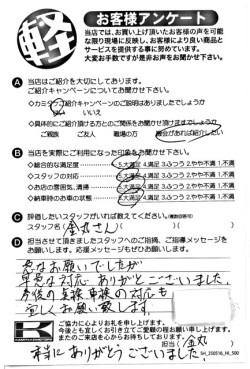 軽
お客様アンケート
当店では、お買い上げ頂いたお客様の声を可能
な限り現場に反映し、お客様により良い商品と
サービスを提供する事に努めています。
大変お手数ですが是非お声をお聞かせ下さい。
A 当店はご紹介を大切にしております。
ご紹介キャンペーンについてお聞かせ下さい。
◇カミタケ紹介キャンペーンのご説明はありましたでしょうか
はい いいえ
◇具体的にご紹介頂ける方とのご関係をお聞かせ頂けますでしょうか
ご親族 ご友人 職場の方 機会があれば紹介したい
B 当店を実際にご利用になった印象をお聞かせ下さい。
◇総合的な満足度 5.大満足 4.満足 3.ふつう 2.やや不満 1.不満
◇スタッフの対応 5.大満足 4.満足 3.ふつう 2.やや不満 1.不満
◇お店の雰囲気、清掃 5.大満足 4.満足 3.ふつう 2.やや不満 1.不満
◇納車時のお車の状態 5.大満足 4.満足 3.ふつう 2.やや不満 1.不満
C 評価したいスタッフがいれば教えてください。(複数回答可)
スタッフ名( 金丸さん )
D 担当させて頂きましたスタッフへのご指摘、ご指導メッセージを
お願いします。応援メッセージもぜひお願いします。
急なお願いでしたが
早急な対応 ありがとうございました。
今後の点検 車検の対応も
宜しくお願い致します。
ご協力に心よりお礼を申し上げます。
今後とも宜しくお引き立てご愛顧の程お願い申し上げます。
またのご来店を心からお待ちしております。
担当( 金丸 )
SH_250516_NI_500
本当にありがとうございました。